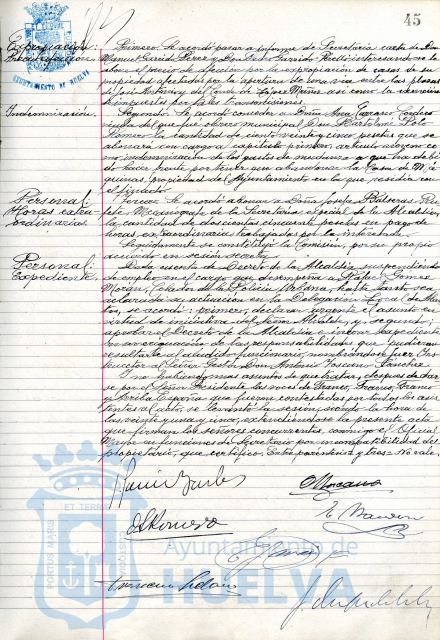 45
AYUNTAMIENTO DE HUELVA
Expropiación:
Primero. Se acordó pasar a informe de Secretaría carta de Don
Manuel García Pérez y Don interesando se le
abone el precio de por la expropiación de casas de su
propiedad afectadas por la apertura de una vía entre las plazas
de José Antonio y del Conde de López Muñoz así como la exención
de impuestos por tales transmisiones.
Indemnización.
Segundo. Se acordó conceder a Doña Ana Cordero
viuda del que fue obrero municipal Don Bartolomé
Romero la cantidad de ciento veinticinco pesetas que se
abonará con cargo al capítulo primero, artículo once co-
mo indemnización de los gastos de mudanza a que ha debi-
do hacer frente por tener que abandonar la Casa de Mi-
siones, propiedad del Ayuntamiento en la que residía con
el finado.
Personal:
Horas extra-
ordinarias.
Tercero. Se acordó abonar a Doña Josefa Balseras
Mecanógrafa de la Secretaría especial de la Alcaldía,
la cantidad de doscientas cincuenta pesetas en pago de
horas extraordinarias trabajadas por la interesada.
Seguidamente se constituyó la Comisión, por su propio
acuerdo en sesión secreta.
Personal:
Expediente.
Dada cuenta de Decreto de la Alcaldía suspendiendo
de empleo en el cargo que desempeña a Rafael Gómez
Morán, Celador de la Policía Urbana, hasta tanto sea
aclarada su actuación en la Delegación Local de Abas-
tos, se acordó: primero, declarar urgente el asunto en
virtud de moción del Señor Alcalde, y segundo,
aprobar el Decreto de la Alcaldía e incoar expediente
en averiguación de las responsabilidades que pudieran
resultarle al aludido funcionario, nombrándose Juez Ins-
tructor al Señor Gestor Don Antonio Sánchez.
Sin existir más asuntos de que tratar, después de dar-
se por el Señor Presidente las voces de Franco, Franco, Franco
y Arriba España que fueron contestadas por todos los asis-
tentes al acto, se levantó la sesión, siendo la hora de
las veinte y una y cinco, extendiéndose la presente acta
que firman los señores concurrentes, conmigo el Oficial
Mayor en funciones de Secretario por
propietario, que certifico. Entre paréntesis y tres = No vale.
PORTUS MARIS
ET TERRÆ
CUSTODIA
Ayuntamiento de
HUELVA